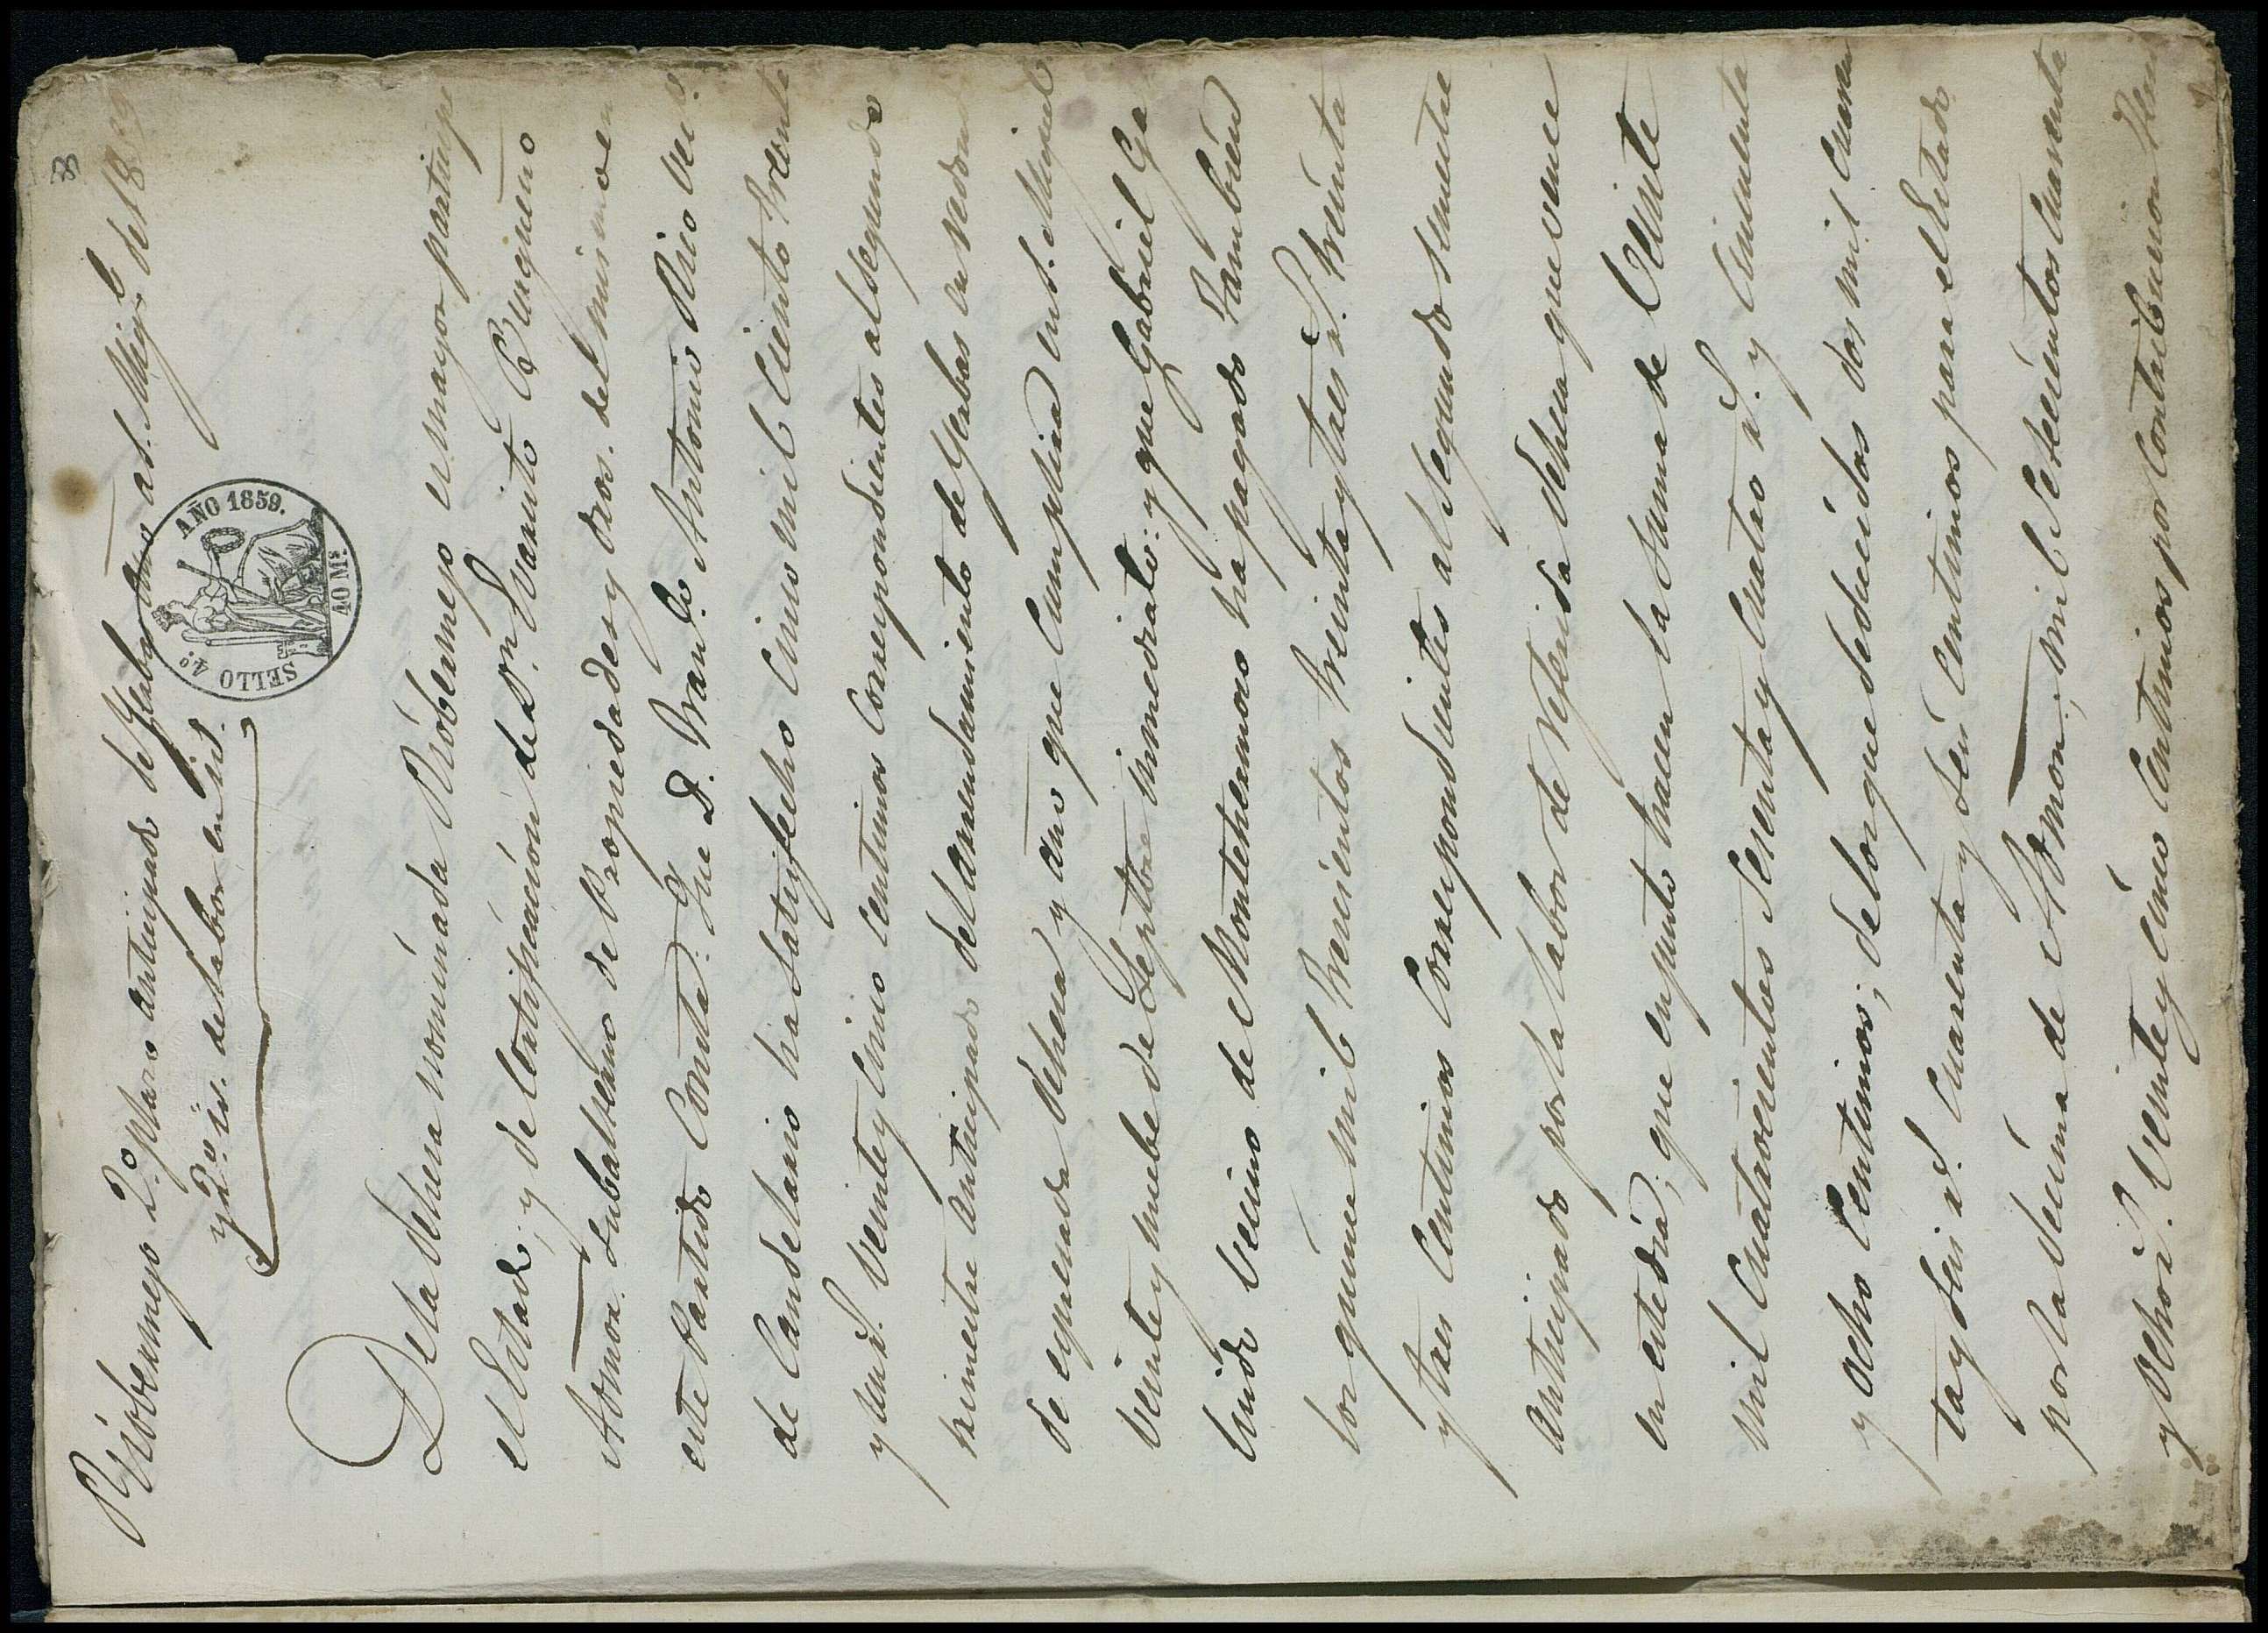 8
Rioobermejo 2.º plazo anticipado de Yerbas año a S. Mig.l de 1859
y 2.º id. de labor en id.
AÑO 1859.
SELLO 4.º
40 Ms.
De la Dehesa nominada Rioobermejo es mayor participe
el Estado; y de Certificacion de Dn. Evaristo Burgueño
Admor. subalterno de Propiedades y dros. del mismo en
este Partido Consta: Que D. Fran.co Antonio Rico vec.o
de Candelario ha satisfecho Cinco mil Ciento treinta
y un r.s veinte y Cinco Centimos Correspondientes al segundo
semestre anticipado del arrendamiento de Yerbas en redondo
de espresada Dehesa y año que Cumplirá en S. Miguel
veinte y nuebe de Septbre inmediato: y que Gabriel Ga
lindo Vecino de Montehermoso ha pagado tambien
los quince mil trescientos treinta y tres r.s treinta
y tres Centimos Correspondientes al segundo semestre
anticipado por la labor de referida dehesa que vence
en este dia; que en junto hacen la suma de Veinte
mil Cuatrocientos sesenta y Cuatro r.s y Cincuenta
y ocho Centimos; de los que deducidos dos mil Cuaren
ta y seis r.s Cuarenta y seis Centimos para el Estado
por la decima de Admon.; mil setecientos Cuarenta
y ocho r.s Veinte y Cinco Centimos por Contribucion